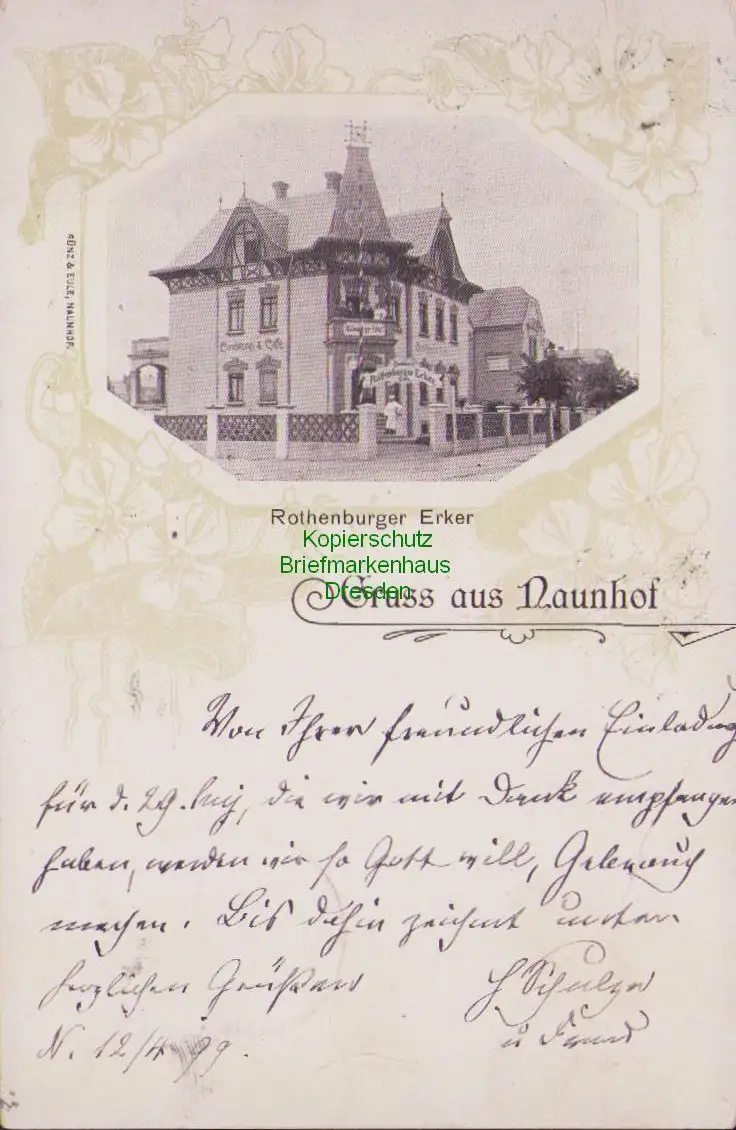 KÜNZ & EULE, NAUNHOF.
Conditorei & Café
Rothenburger Erker
Rothenburger Erker
Kopierschutz
Briefmarkenhaus
Dresden
Gruss aus Naunhof
Von Ihrer freundlichen Einladung
für d. 29. , die wir mit Dank empfangen
haben, werden wir so Gott will, Gebrauch
machen. Bis dahin zeichnet unter
herzlichen Grüßen H Schulze
N. 12/4 99. u Frau